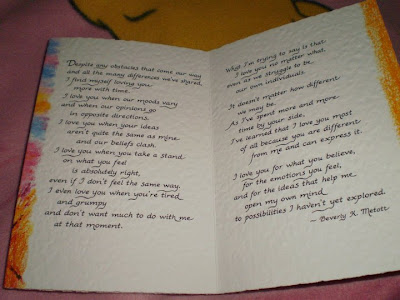 Despite any obstacles that come our way
and all the many differences we've shared,
I find myself loving you
more with time...
I love you when our moods vary
and when our opinions go
in opposite directions.
I love you when your ideas
aren't quite the same as mine
and our beliefs clash.
I love you when you take a stand
on what you feel
is absolutely right,
even if I don't feel the same way.
I even love you when you're tired
and grumpy
and don't want much to do with me
at that moment.
What I'm trying to say is that
I love you no matter what,
even as we struggle to be
our own individuals.
It doesn't matter how different
we may be.
As I've spent more and more
time by your side,
I've learned that I love you most
of all because you are different
from me and can express it.
I love you for what you believe,
for the emotions you feel,
and for the ideas that help me
open my own mind
to possibilities I haven't yet explored.
— Beverly K. Metott